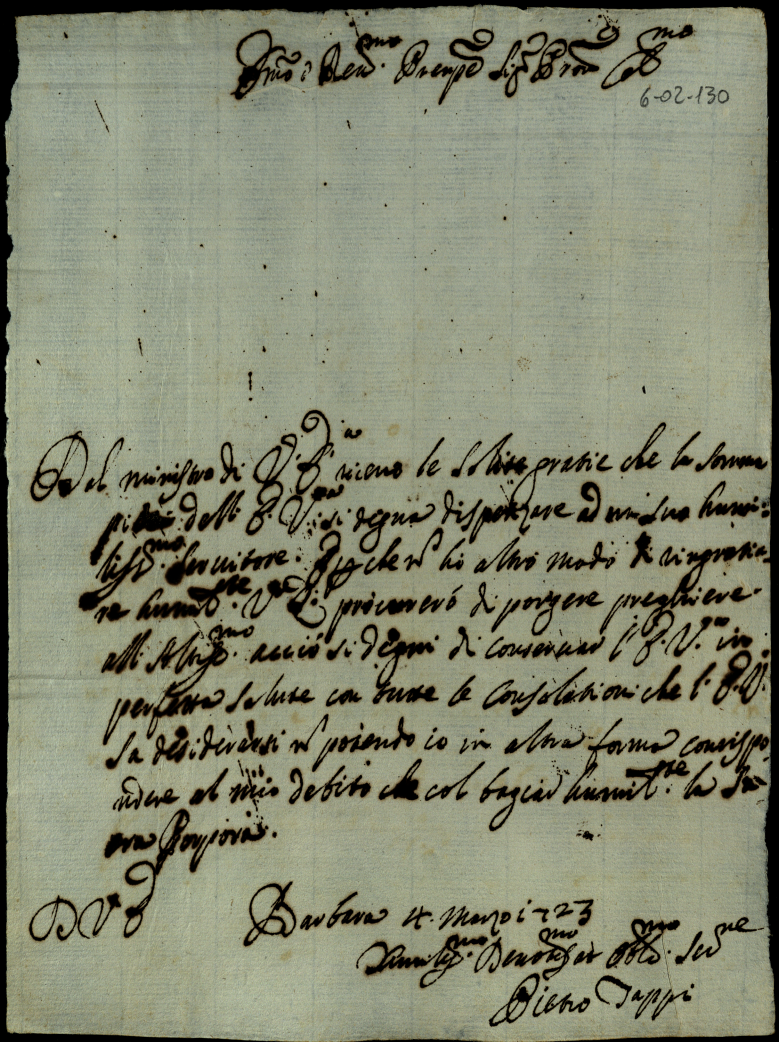 Em̃o e Reu.mo Prenpe Sig.r Prõn C.mo
6-02-130
Dal ministro di V. E.a riceuo le Solite gratie che la somma
pietà dell' E. V.ra si degna dispenzare ad un suo humi=
liss.mo Seruitore. Perche nõ ho altro modo di ringratia=
re humil.te V.E. procurerò di porgere preghiere
all' Altiss.mo acciò si degni di conseruar l' E. V.ra in
perfetta Salute con tutte le Consolationi che l' E. V.
sa desiderarsi nõ potendo io in altra forma corrispo
ndere al mio debito che col bagiar humil.te la Sa=
cra Porpora.
D V E
Barbara 4. Marzo 1723
Humiliss.mo Deuotiss.mo et Obl.mo Ser.re
Pietro Tappi